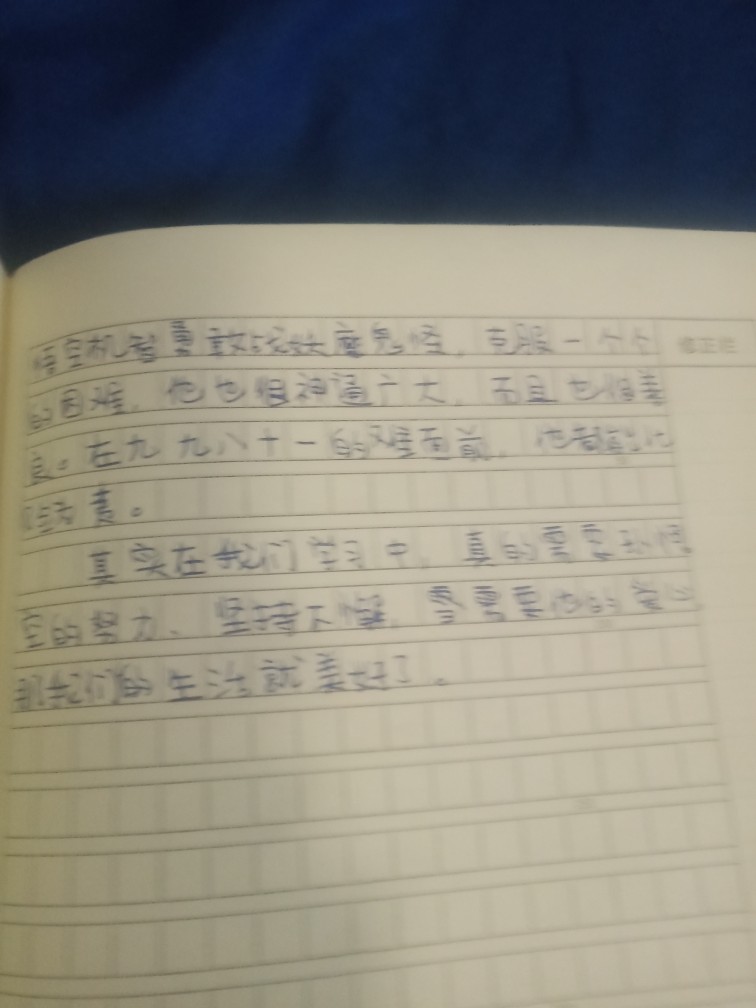 悟空机智勇敢战妖魔鬼怪，克服一个个
的困难，他也很神通广大，而且也很善
良。在九九八十一的难面前，他都
为善。
真实在我们学习中，真的需要孙悟
空的努力、坚持不懈，需要他的爱心
那我们的生活就美好了。
修正栏